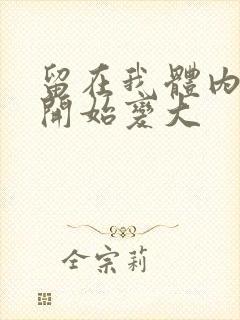 留在我體內
開始變大
全宗莉